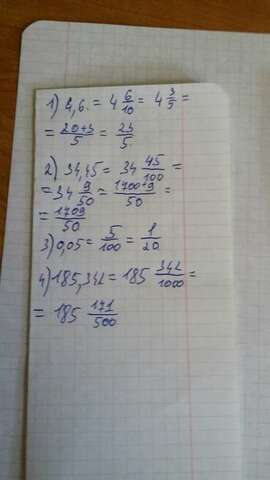 1) 4,6 = 4 6/10 = 4 3/5 =
= 20+3/5 = 23/5
2) 34,45 = 34 45/100 =
= 34 9/50 = 1700+9/50 =
= 1709/50
3) 0,05 = 5/100 = 1/20
4) 185,342 = 185 342/1000 =
= 185 171/500